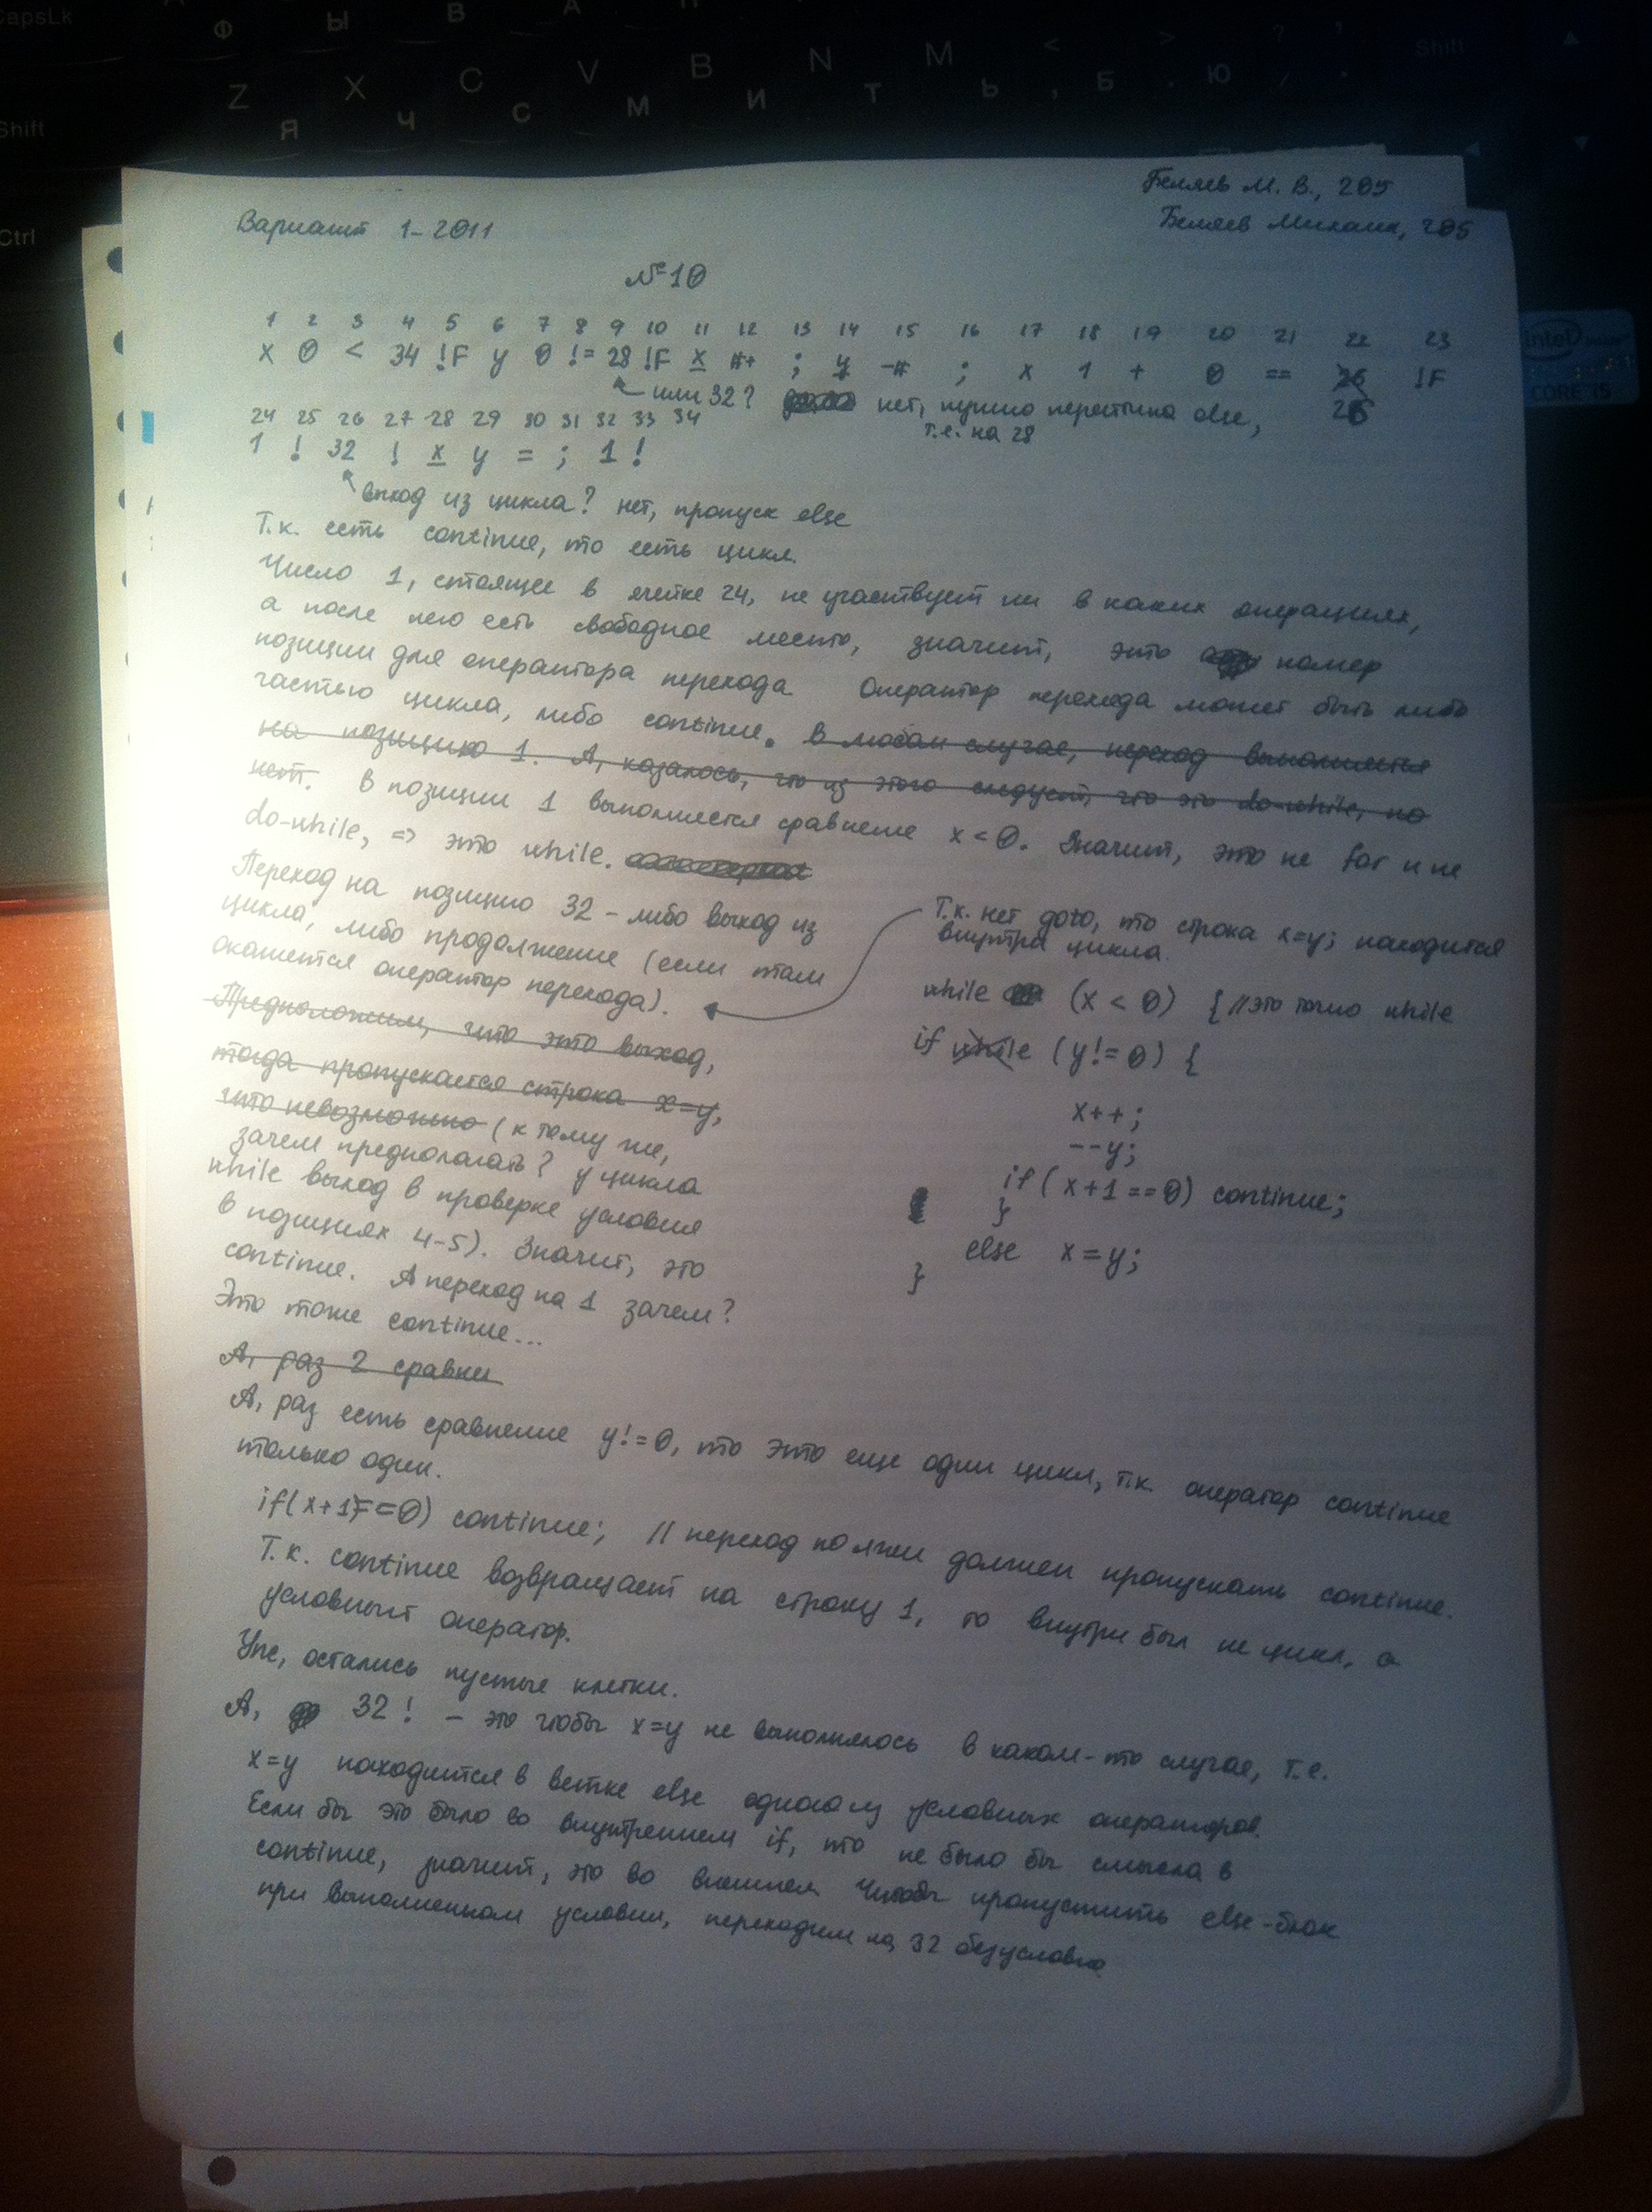 CapsLk Ф Ы В А П
Shift Z X C V B N M < > ? Shift
Я Ч С М И Т Ь , Б . Ю
Ctrl
intel
CORE i5
Беляев М. В., 205
Вариант 1-2011
Беляев Михаил, 205
№10
1 2 3 4 5 6 7 8 9 10 11 12 13 14 15 16 17 18 19 20 21 22 23
x 0 < 34 !F y 0 != 28 !F x #+ ; y -# ; x 1 + 0 == 26 !F
или 32? нет, нужно перейти на else, 26
т.е. на 28
24 25 26 27 28 29 30 31 32 33 34
1 ! 32 ! x y = ; 1 !
выход из цикла? нет, пропуск else
Т.к. есть continue, то есть цикл.
Число 1, стоящее в ячейке 24, не участвует ни в каких операциях,
а после него есть свободное место, значит, это номер
позиции для оператора перехода Оператор перехода может быть либо
частью цикла, либо continue. В любом случае, переход выполняется
на позицию 1. А, казалось, что из этого следует, что это do-while, но
нет. В позиции 1 выполняется сравнение x < 0. Значит, это не for и не
do-while, => это while.
Переход на позицию 32 - либо выход из
цикла, либо продолжение (если там
окажется оператор перехода).
Предположим, что это выход,
тогда пропускается строка x=y,
что невозможно (к тому же,
зачем предполагать? у цикла
while выход в проверке условия
в позициях 4-5). Значит, это
continue. А переход на 1 зачем?
Это тоже continue...
Т.к. нет goto, то строка x=y; находится
внутри цикла.
while (x < 0) { //это точно while
if while (y != 0) {
x++;
--y;
if (x+1==0) continue;
}
else x=y;
}
А, раз 2 сравни
А, раз есть сравнение y!=0, то это еще один цикл, т.к. оператор continue
только один.
if(x+1==0) continue; // переход по лжи должен пропускать continue.
Т.к. continue возвращает на строку 1, то внутри был не цикл, а
условный оператор.
Упс, остались пустые клетки.
А, 32! - это чтобы x=y не выполнялось в каком-то случае, т.е.
x=y находится в ветке else одного из условных операторов.
Если бы это было во внутреннем if, то не было бы смысла в
continue, значит, это во внешнем. Чтобы пропустить else-блок
при выполненном условии, переходим на 32 безусловно